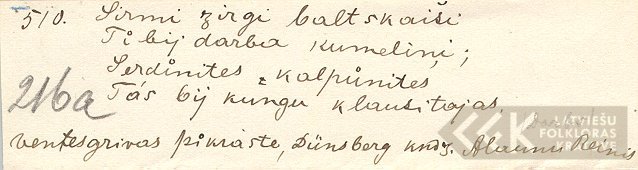 510. Sirmi zirgi balt skaiši
Ti bij darba kumeliņi;
Serdånites, kalpůnites
Tas bij kungu klausitajas,
216a
ventesgrivas pikraste, Dünsberg kndz. Alaunu Reinis
LFK
LATVIEŠU
FOLKLORAS
KRĀTUVE